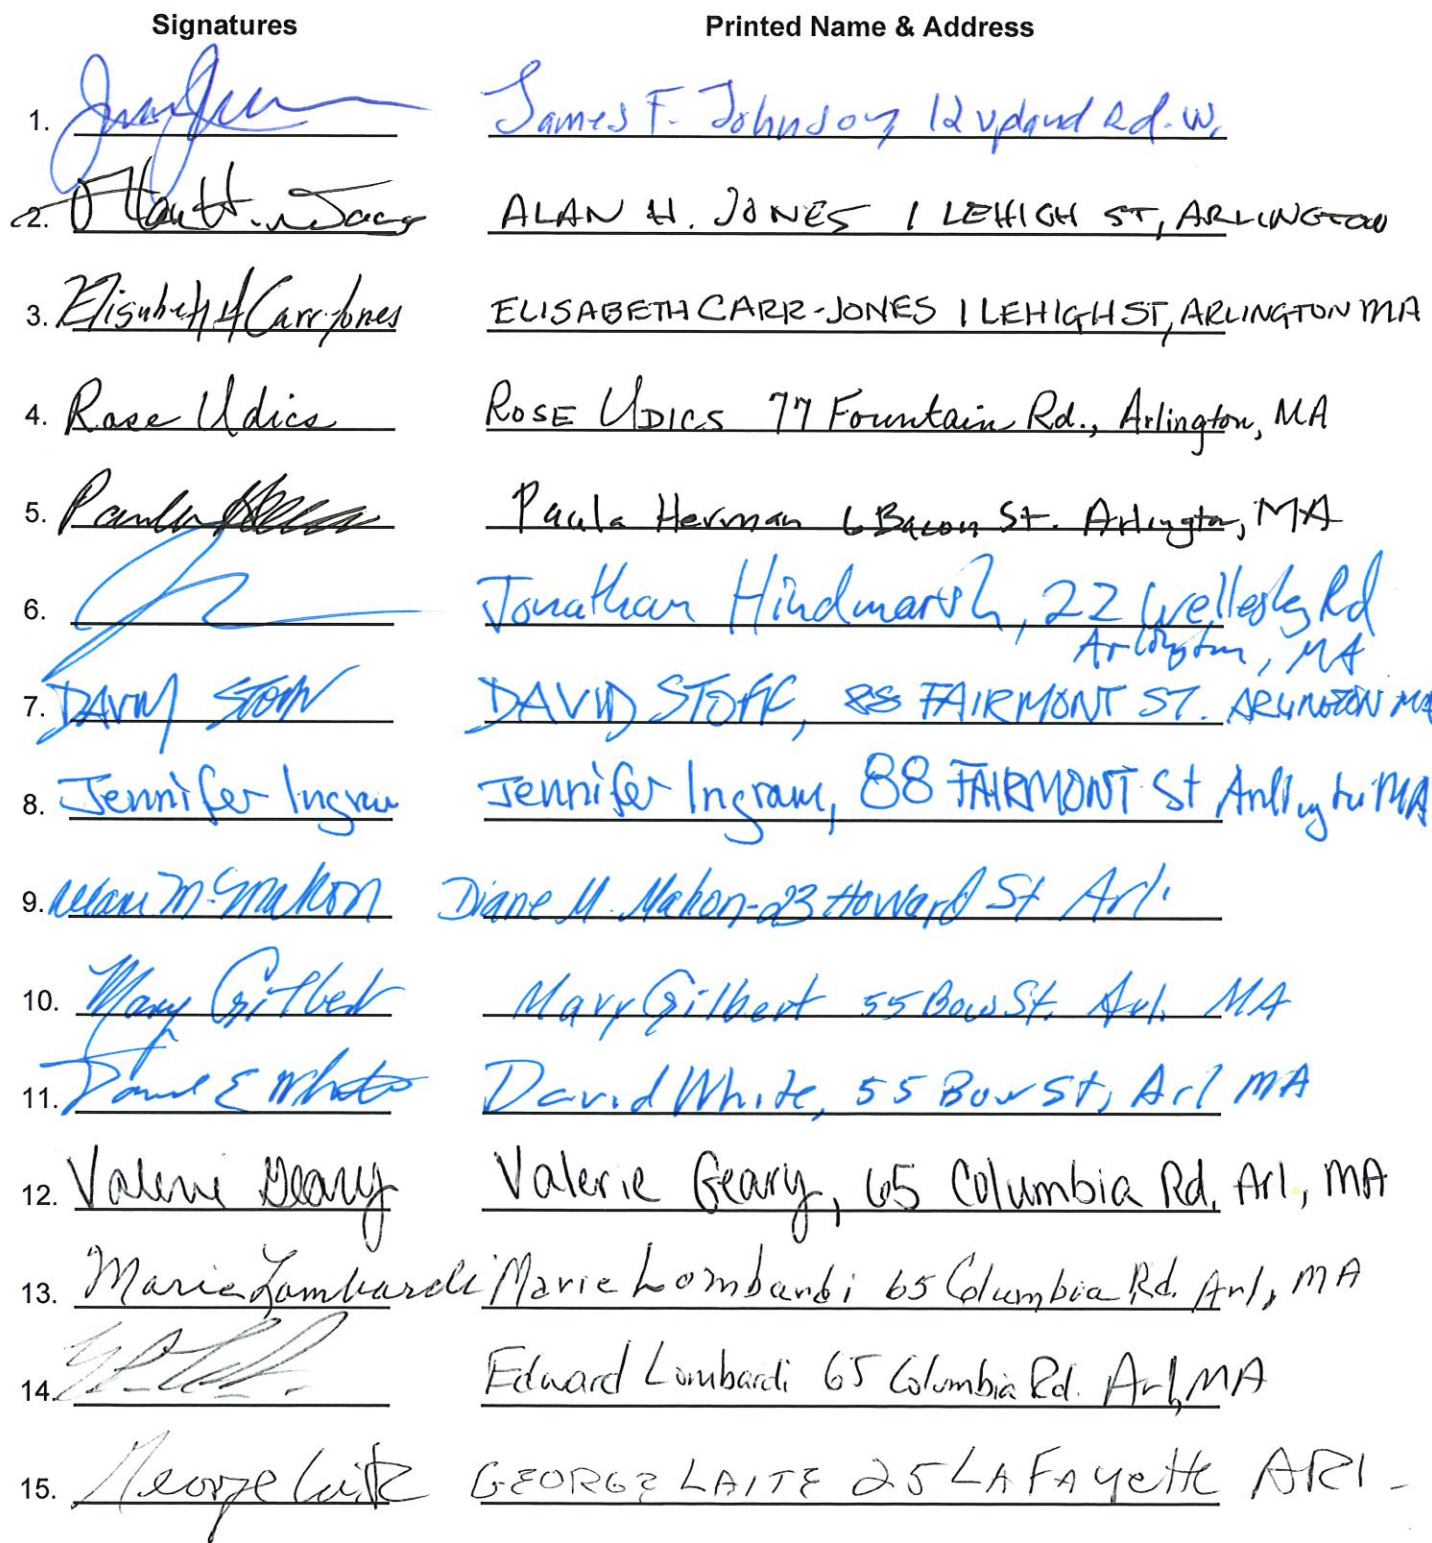 Signatures Printed Name & Address
1. James F. Johnson 12 Upland Rd. W.
2. Alan H. Jones ALAN H. JONES 1 LEHIGH ST, ARLINGTON
3. Elisabeth H Carr-Jones ELISABETH CARR-JONES 1 LEHIGH ST, ARLINGTON MA
4. Rose Udics ROSE UDICS 77 Fountain Rd., Arlington, MA
5. Paula Herman Paula Herman 6 Bacon St. Arlington, MA
6. Jonathan Hindmarsh, 22 Wellesley Rd
Arlington, MA
7. DAVID STOFF DAVID STOFF, 88 FAIRMONT ST. ARLINGTON MA
8. Jennifer Ingram Jennifer Ingram, 88 FAIRMONT St Arlington MA
9. Diane M. Mahon Diane M. Mahon-23 Howard St Arl.
10. Mary Gilbert Mary Gilbert 55 Bow St. Arl. MA
11. David E White David White, 55 Bow St, Arl MA
12. Valerie Geary Valerie Geary, 65 Columbia Rd. Arl., MA
13. Marie Lombardi Marie Lombardi 65 Columbia Rd. Arl, MA
14. Edward Lombardi 65 Columbia Rd. Arl, MA
15. George Laite GEORGE LAITE 25 LAFAyette ARl -